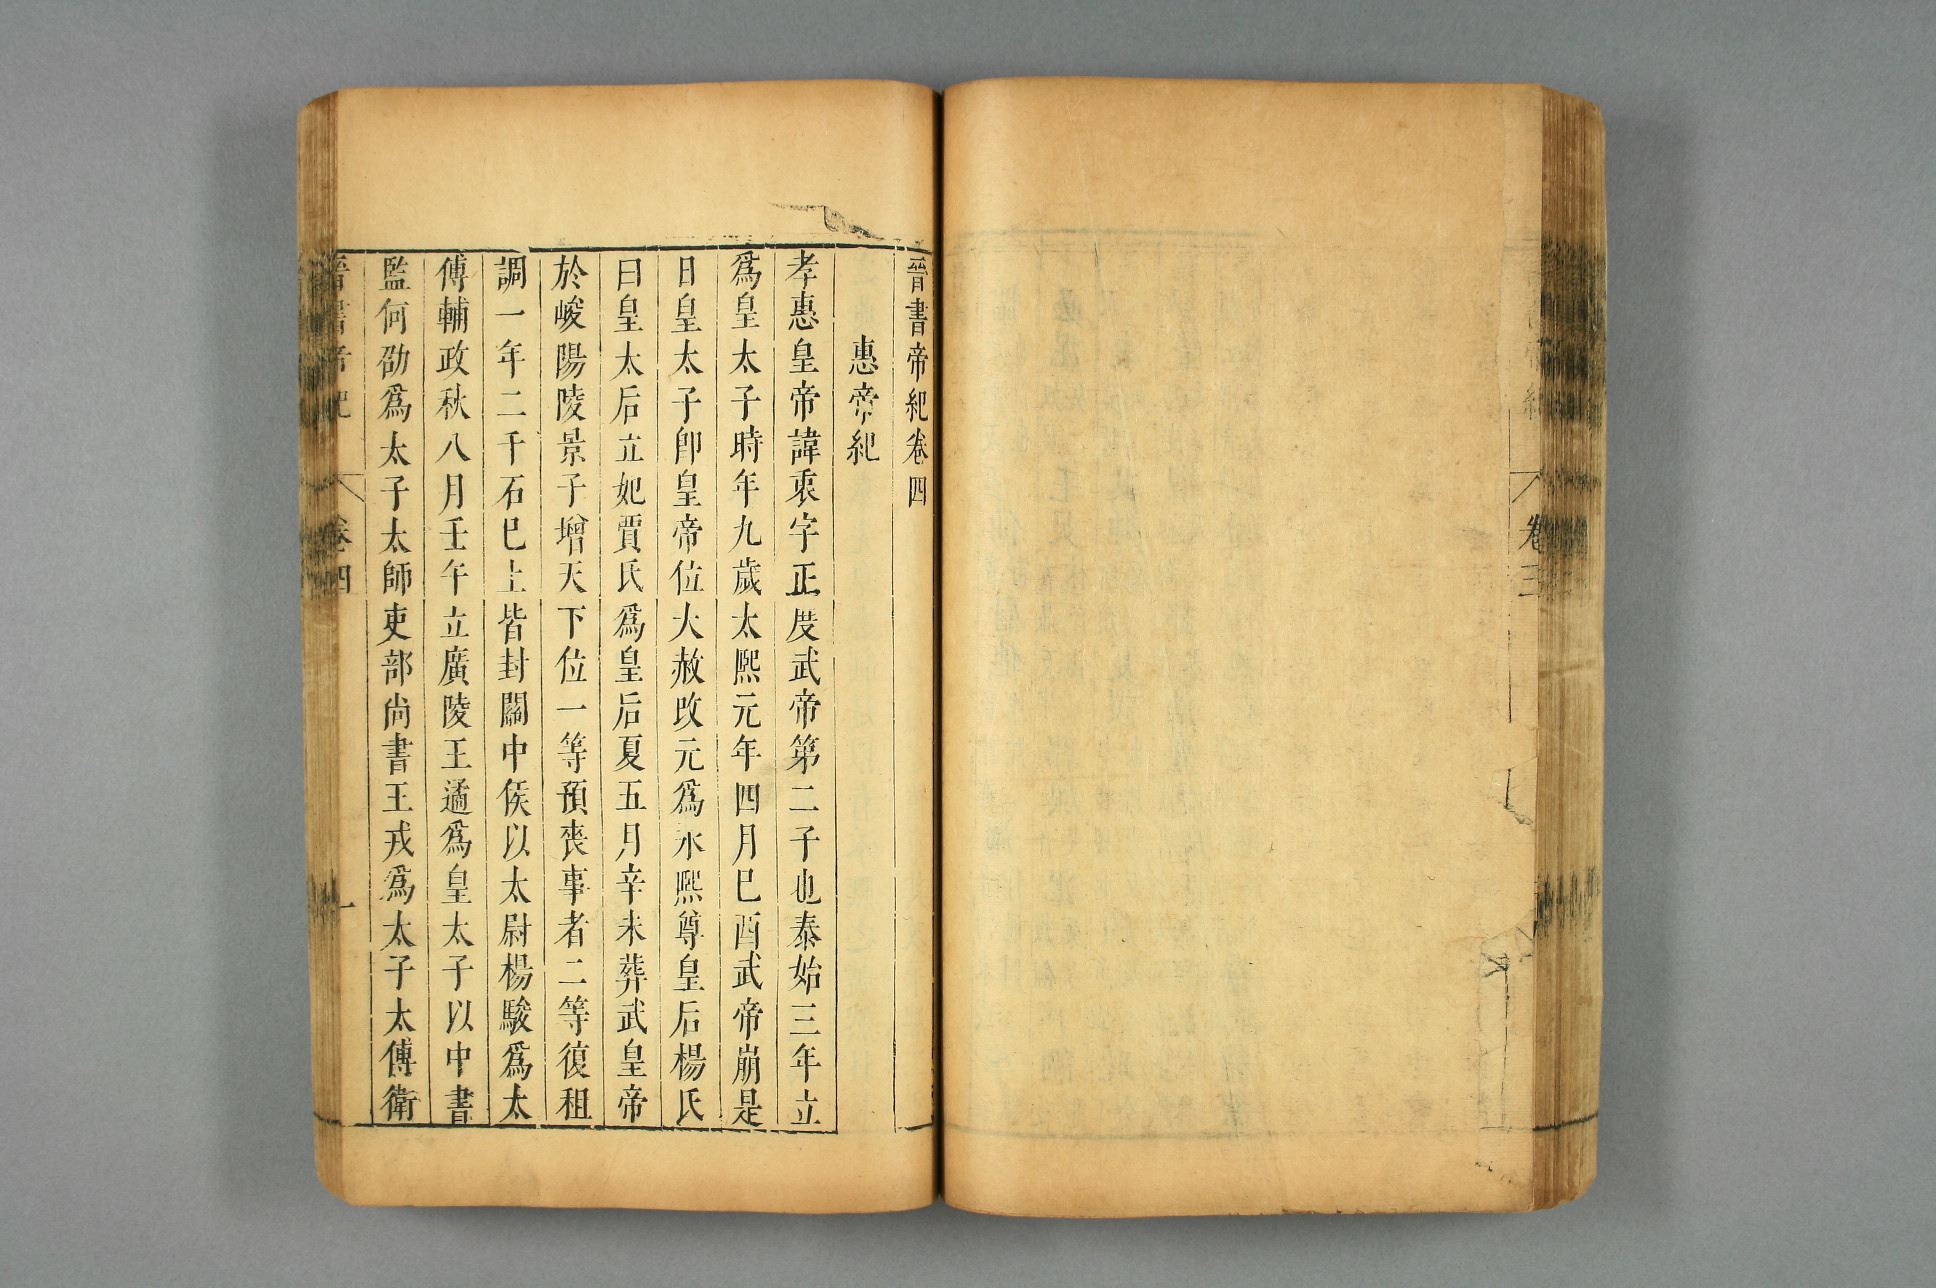 晉書帝紀卷四
惠帝紀
孝惠皇帝諱衷字正度武帝第二子也泰始三年立
爲皇太子時年九歲太熈元年四月巳酉武帝崩是
日皇太子卽皇帝位大赦改元爲永熈尊皇后楊氏
曰皇太后立妃賈氏爲皇后夏五月辛未葬武皇帝
於峻陽陵景子增天下位一等預喪事者二等復租
調一年二千石巳上皆封關中侯以太尉楊駿爲太
傅輔政秋八月壬午立廣陵王遹爲皇太子以中書
監何劭爲太子太師吏部尚書王戎爲太子太傅衛
晉書帝紀 卷四 一
卷三